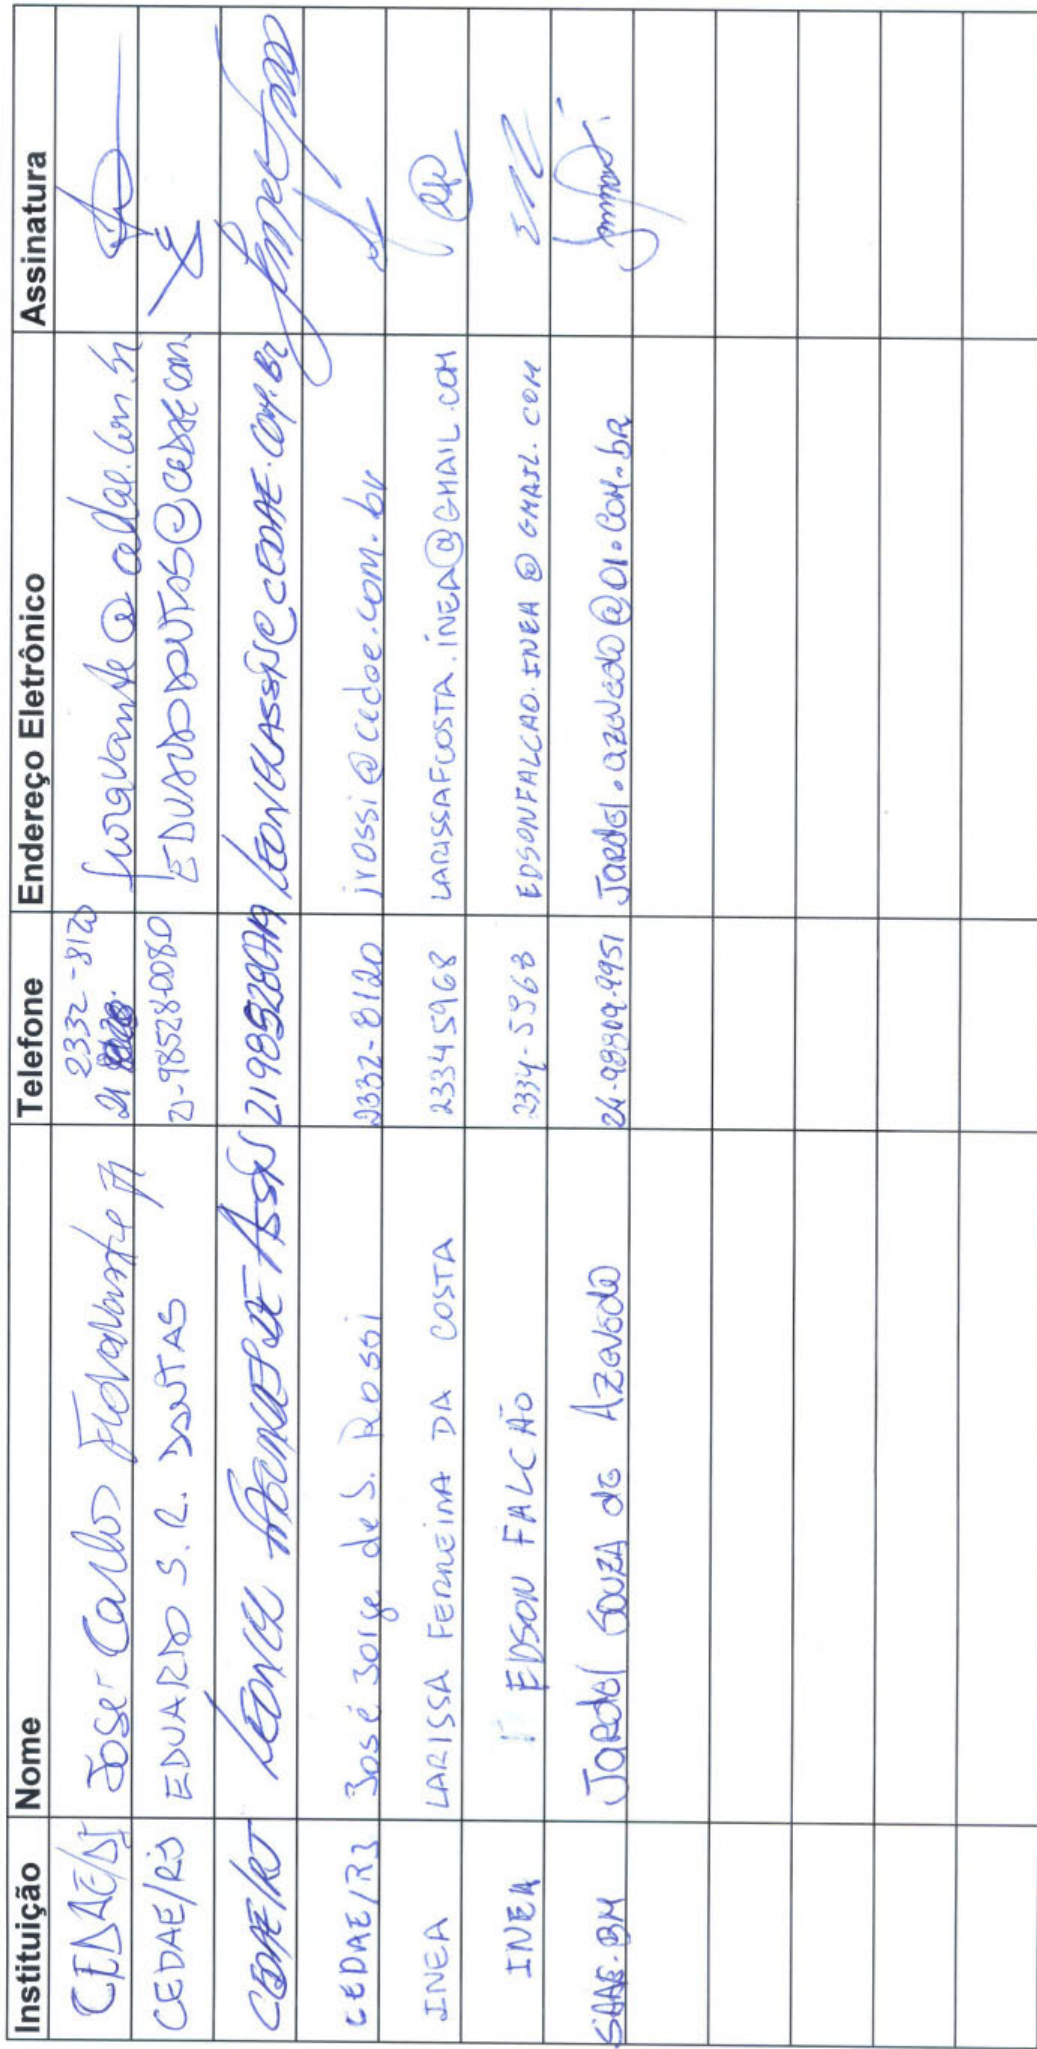 Instituição Nome Telefone Endereço Eletrônico Assinatura
José Carlos 2332-8120 21
CEDAE/RJ EDUARDO S. R. DANTAS 21-98528-0080 EDUARDODANTAS@CEDAE.COM
CEDAE/RJ LEONCIL DE ASSIS LEONCILASSIS@CEDAE.COM.BR
CEDAE/RJ José Jorge de S. Rossi 2332-8120 jrossi@cedae.com.br
INEA LARISSA FERREIRA DA COSTA 23345968 LARISSAFCOSTA.INEA@GMAIL.COM
INEA EDSON FALCÃO 2334-5968 EDSONFALCAO.INEA@GMAIL.COM
SAAE-BM JARDEL SOUZA de AZEVEDO 24-99909-9951 JARDEL.AZEVEDO@OI.COM.BR